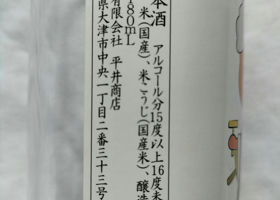 本酒
アルコール分15度以上16度未
米(国産)、米こうじ(国産米)、醸造
180mL
有限会社 平井商店
県大津市中央一丁目二番三十三号